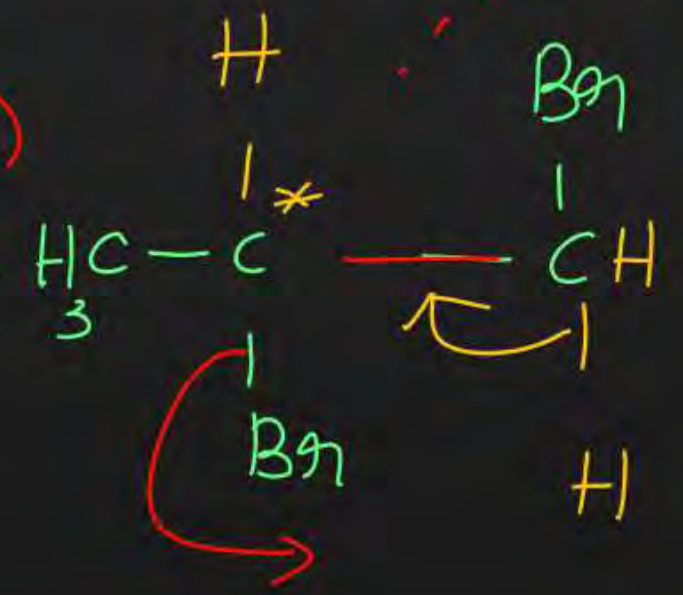 H Br
| * |
H3C - C — CH
| |
Br H